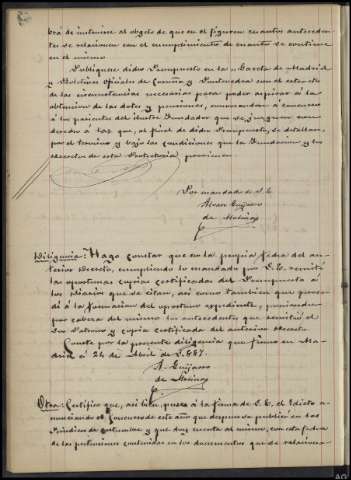 bra de instruirse al objeto de que en él figuren cuantos anteceden-
tes se relacionen con el cumplimiento de cuanto se contiene
en el mismo.
Publíquese dicho Presupuesto en la Gaceta de Madrid
y Boletines Oficiales de Coruña y Pontevedra con el extracto
de las circunstancias necesarias para poder aspirar á la
obtencion de las dotes y pensiones, convocando á concurso
á los parientes del ilustre Fundador que se juzguen con
derecho á las que, al final de dicho Presupuesto, se detallan,
por el término y bajo las condiciones que la Fundacion y los
decretos de este Protectorado previenen.
Por mandado de S. E.
Alvaro Guijarro
de Molina
Diligencia: Hago constar que en la propia fecha del an-
terior Decreto, cumpliendo lo mandado por S. E. remití
las oportunas copias certificadas del Presupuesto á
los Diarios que se citan, así como tambien que proce-
dí á la formacion del oportuno expediente, poniendo
por cabeza del mismo los antecedentes que remitió el
Sor Patrono y copia certificada del anterior decreto.
Consta por la presente diligencia que firmo en Ma-
drid á 24 de Abril de 1.887.
A. Guijarro
de Molina
Otra: Certifico que, así bien, puse á la firma de S. E. el Edicto a-
nunciando el Concurso de este año que despues se publicó en los
Periódicos de costumbre y que doy cuenta al mismo, con esta fecha
de las peticiones contenidas en los documentos que se relaciona-